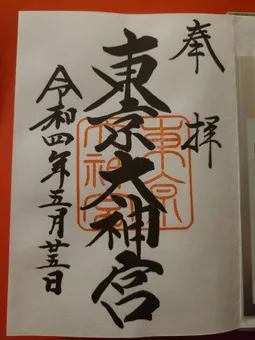 奉拝
東京大神宮
東京大神宮
令和四年五月廿五日